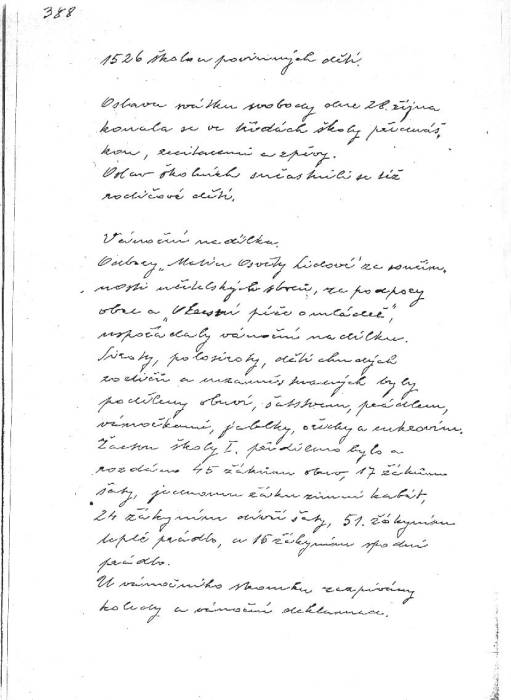 388
1526 škola povinných dětí.
Oslava svátku svobody dne 28. října
konala se ve třídách školy přednáš,
kou, recitacemi a zpěvy.
Oslav školních súčastnili se též
rodičové dětí.
Vánoční nadílka.
Odbory „Matice Osvěty Lidové" za součin,
nosti učitelských sborů, za podpory
obce a „Okresní péče o mládež",
uspořádaly vánoční nadílku.
Siroty, polosiroty, děti chudých
rodičů a nezaměstnaných byly
poděleny obuví, šatstvem, prádlem,
vánočkami, jablky, ořechy a cukrovím.
Žactvu školy I. přiděleno bylo a
rozdáno 45 žákům obuv, 17 žákům
šaty, jednomu žáku zimní kabát,
24 žákyním dívčí šaty, 51. žákyním
teplé prádlo, a 16 žákyním spodní
prádlo.
U vánočního stromku zazpívány
koledy a vánoční deklamace.